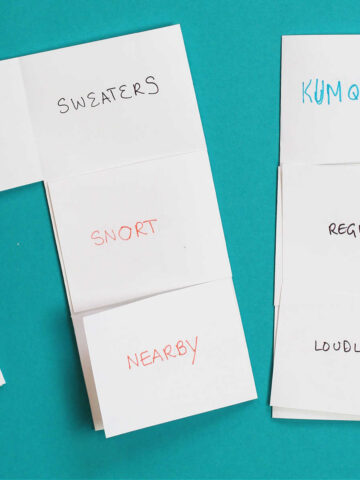 SWEATERS
SNORT
NEARBY
KUMQ
REG
LOUDL